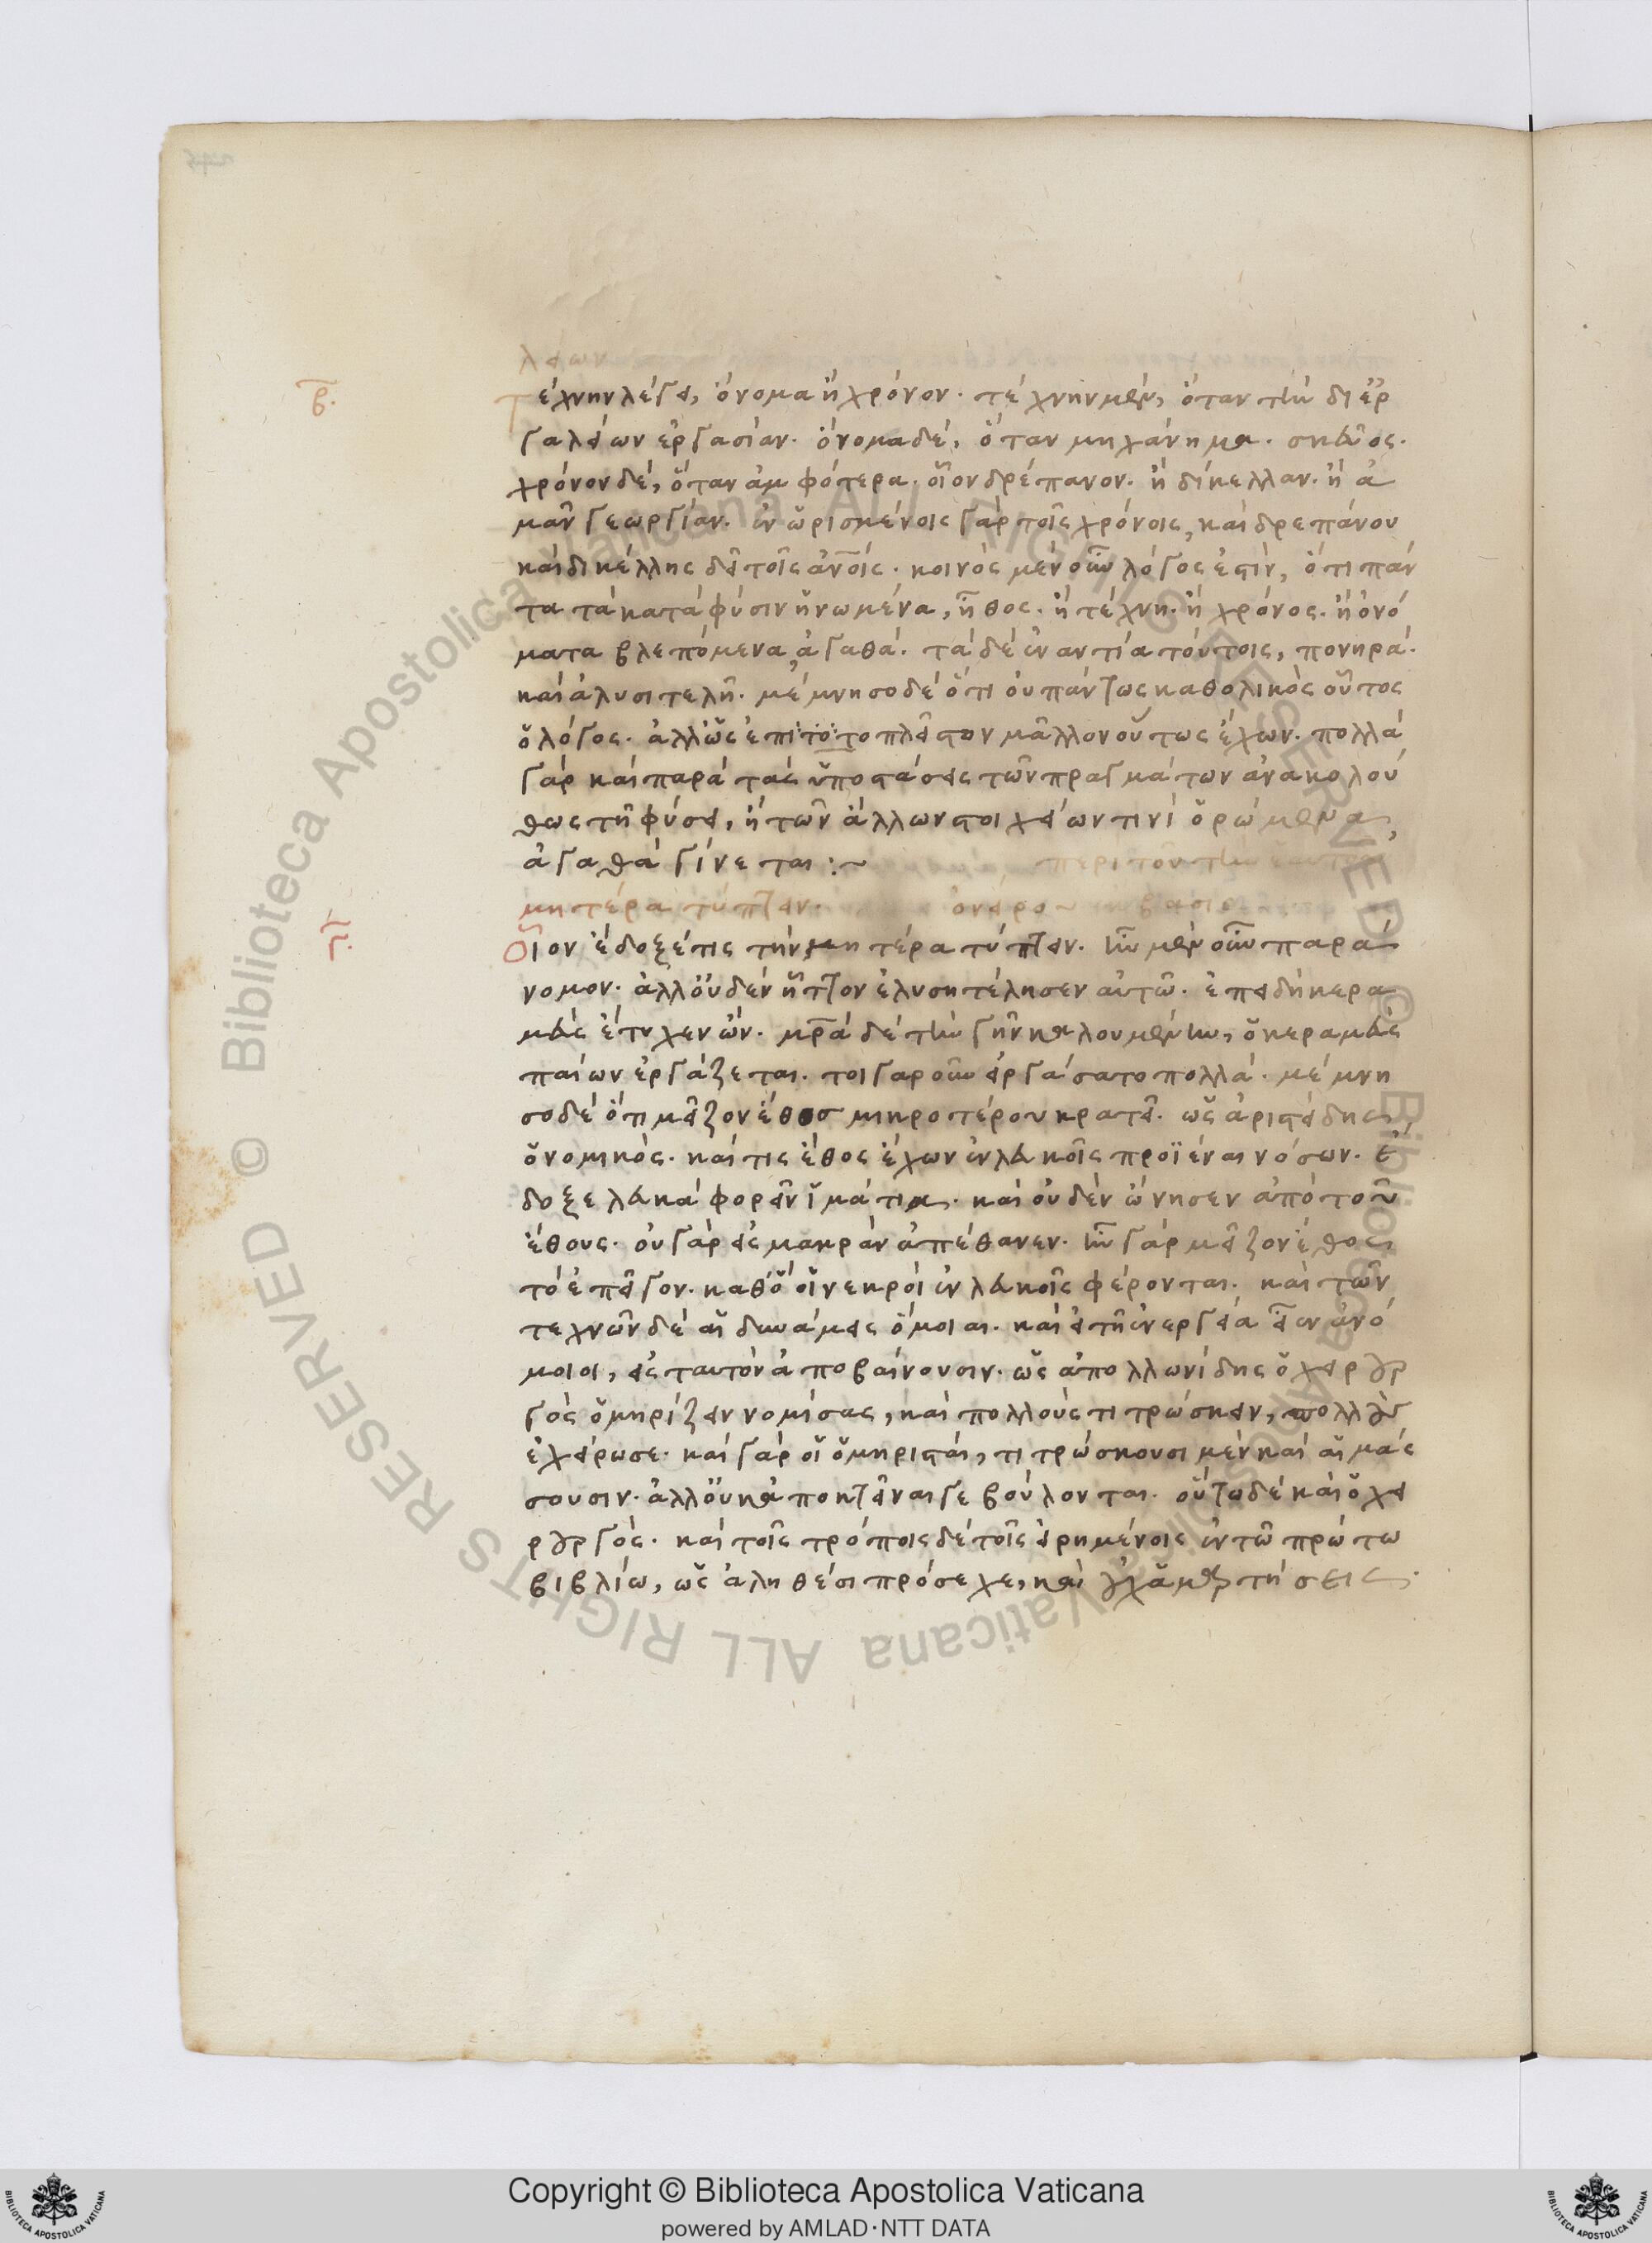 λείων
β.
τέχνην λέγει, ὄνομα ἢ χρόνον. τέχνην μὲν, ὅταν τὴν δι ἐρ
γαλείων ἐργασίαν. ὄνομα δέ, ὅταν μηχάνημα. σκεῦος.
χρόνον δέ, ὅταν ἀμφότερα. οἷον δρέπανον. ἢ δίκελλαν. ἢ ἀ
μᾶν γεωργίαν. ἐν ὡρισμένοις γὰρ τοῖς χρόνοις, καὶ δρεπάνου
καὶ δικέλλης δεῖ τοῖς ἀνοις. κοινὸς μὲν οὖν λόγος ἐστίν, ὅτι πάν
τα τὰ κατὰ φύσιν ἡνωμένα, ἢ ἦθος. ἢ τέχνη. ἢ χρόνος. ἢ ὀνό
ματα βλεπόμενα, ἀγαθά. τὰ δὲ ἐναντία τούτοις, πονηρά.
καὶ ἀλυσιτελῆ. μέμνησο δὲ ὅτι οὐ πάντως καθολικὸς οὗτος
ὁ λόγος. ἀλλ ὡς ἐπὶ τὸ το πλεῖστον μᾶλλον οὕτως ἔχων. πολλὰ
γὰρ καὶ παρὰ τὰς ὑποστάσεις τῶν πραγμάτων ἀνακολού
θως τῇ φύσει, ἢ τῶν ἄλλων στοιχείων τινὶ ὁρώμενα,
ἀγαθὰ γίνεται :~ περὶ τοῦ τὴν ἑαυτοῦ
μητέρα τύπτειν. ὄνειρον
γ.
Οἷον ἔδοξέ τις τὴν μητέρα τύπτειν. ἦν μὲν οὖν παρά
νομον. ἀλλ οὐδὲν ἧττον ἐλυσητέλησεν αὐτῶ. ἐπειδὴ κερα
μεὺς ἔτυχεν ὤν. μρα δὲ τὴν γῆν καλουμένην, ὁ κεραμεὺς
παίων ἐργάζεται. τοιγαροῦν εἰργάσατο πολλά. μέμνη
σο δὲ ὅτι μεῖζον ἔθος μικροτέρου κρατεῖ. ὡς ἀριστείδης
ὁ νομικὸς. καί τις ἔθος ἔχων ἐν λευκοῖς προϊέναι νόσων. ἔ
δοξε λευκὰ φορεῖν ἱμάτια. καὶ οὐδὲν ὤνησεν ἀπὸ τοῦ
ἔθους. οὐ γὰρ εἰς μακρὰν ἀπέθανεν. ἦν γὰρ μεῖζον ἔθος
τὸ ἐπεῖγον. καθ ὃ οἱ νεκροὶ ἐν λευκοῖς φέρονται. καὶ τῶν
τεχνῶν δὲ αἱ δυνάμεις ὅμοιαι. καὶ εἰ τῇ ἐνεργεία εἶεν ἀνό
μοιοι, εἰς ταυτὸν ἀποβαίνουσιν. ὡς ἀπολλωνίδης ὁ χειρουρ
γὸς ὁμηρίζειν νομίσας, καὶ πολλοὺς τιτρώσκειν, πολλοὺς
ἐχείρωσε. καὶ γὰρ οἱ ὁμηρισταὶ, τιτρώσκουσι μὲν καὶ αἱμάσ
σουσιν. ἀλλ οὐκ ἀποκτεῖναι γε βούλονται. οὕτω δὲ καὶ ὁ χει
ρουργὸς. καὶ τοῖς τρόποις δὲ τοῖς εἰρημένοις ἐν τῶ πρώτω
βιβλίω, ὡς ἀληθέσι πρόσεχε, καὶ οὐχ ἁμαρτήσεις.
Copyright © Biblioteca Apostolica Vaticana
powered by AMLAD·NTT DATA